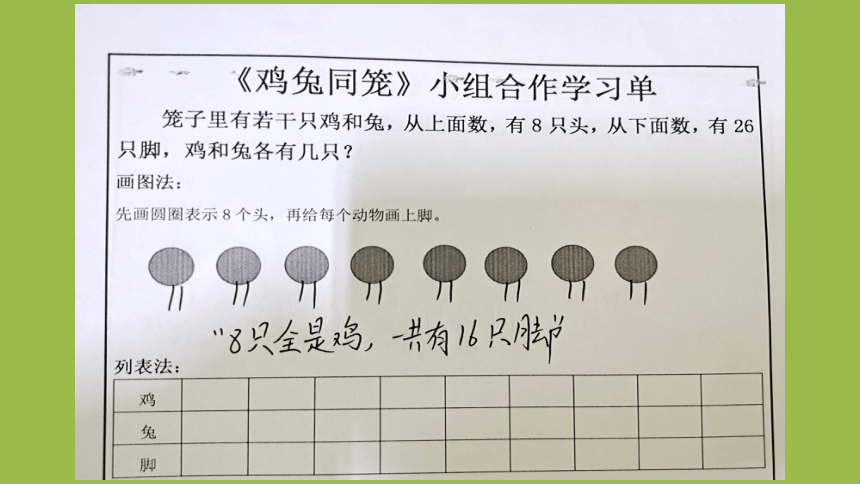 《鸡兔同笼》小组合作学习单
笼子里有若干只鸡和兔，从上面数，有 8 只头，从下面数，有 26
只脚，鸡和兔各有几只？
画图法：
先画圆圈表示 8 个头，再给每个动物画上脚。
“8只全是鸡，一共有16只脚”
列表法：
鸡
兔
脚